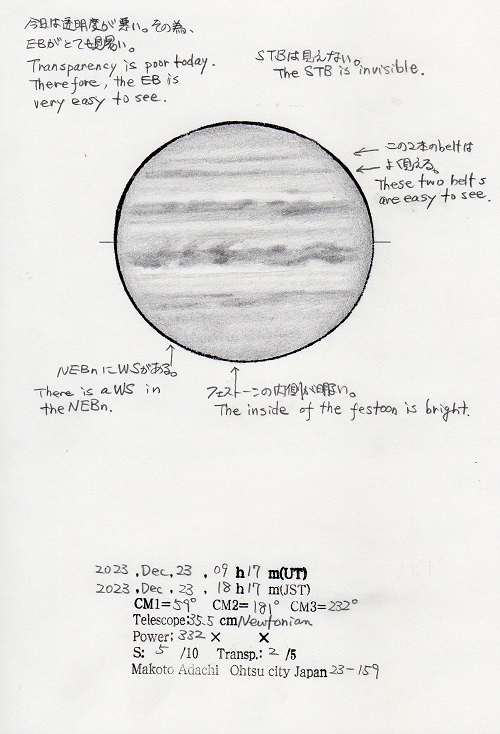 今日は透明度が悪い。その為、
EBがとても見易い。
Transparency is poor today.
Therefore, the EB is
very easy to see.
STBは見えない。
The STB is invisible.
この2本のbeltは
よく見える。
These two belts
are easy to see.
NEBnにWSがある。
There is a WS in
the NEBn.
フェストーンの内側が明るい。
The inside of the festoon is bright.
2023 . Dec. 23 . 09 h 17 m(UT)
2023 . Dec . 23 . 18 h 17 m(JST)
CM1= 59° CM2= 181° CM3= 232°
Telescope; 35.5 cm Newtonian
Power; 332 × ×
S: 5 /10 Transp.: 2 /5
Makoto Adachi Ohtsu city Japan 23-159